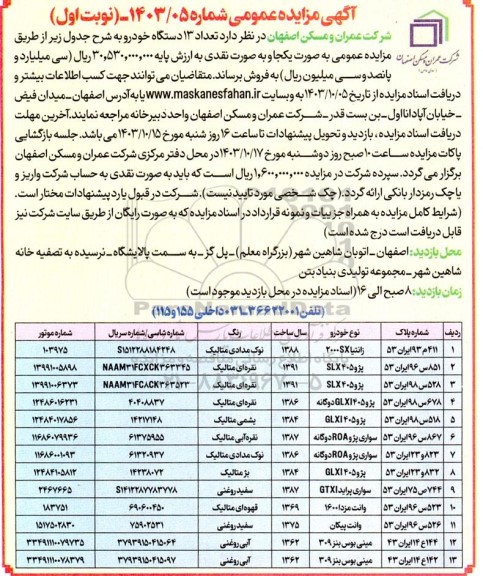 آگهی مزایده عمومی شماره ۱۴۰۳/۰۵ـ (نوبت اول)
شرکت عمران و مسکن اصفهان
شرکت عمران و مسکن اصفهان در نظر دارد تعداد ۱۳ دستگاه خودرو به شرح جدول زیر از طریق
مزایده عمومی به صورت یکجا و به صورت نقدی به ارزش پایه ۳۰,۵۳۰,۰۰۰,۰۰۰ ریال (سی میلیارد و
پانصد و سی میلیون ریال) به فروش برساند. متقاضیان می‌توانند جهت کسب اطلاعات بیشتر و
دریافت اسناد مزایده از تاریخ ۱۴۰۳/۱۰/۰۵ به وبسایت www.maskanesfahan.ir یا به آدرس اصفهان ـ میدان فیض
ـ خیابان آپادانا اول ـ بن بست قدر ـ شرکت عمران و مسکن اصفهان واحد دبیرخانه مراجعه نمایند. آخرین مهلت
دریافت اسناد مزایده، بازدید و تحویل پیشنهادات تا ساعت ۱۶ روز شنبه مورخ ۱۴۰۳/۱۰/۱۵ می باشد. جلسه بازگشایی
پاکات مزایده ساعت ۱۰ صبح روز دوشنبه مورخ ۱۴۰۳/۱۰/۱۷ در محل دفتر مرکزی شرکت عمران و مسکن اصفهان
برگزار می گردد. سپرده شرکت در مزایده ۱,۶۰۰,۰۰۰,۰۰۰ ریال است که باید به صورت نقدی به حساب شرکت واریز و
یا چک رمزدار بانکی ارائه گردد. (چک شخصی مورد تایید نیست). شرکت در قبول یا رد پیشنهادات مختار است.
(شرایط کامل مزایده به همراه جزییات و نمونه قرارداد در اسناد مزایده که به صورت رایگان از طریق سایت شرکت نیز
قابل دریافت است درج شده است)
محل بازدید: اصفهان ـ اتوبان شاهین شهر (بزرگراه معلم) ـ پل گز ـ به سمت پالایشگاه ـ نرسیده به تصفیه خانه
شاهین شهر ـ مجموعه تولیدی بنیاد بتن
زمان بازدید: ۸ صبح الی ۱۶ (اسناد مزایده در محل بازدید موجود است)
(تلفن ۳۶۶۲۲۰۰۱-۰۳۱ داخلی ۱۵۵ و ۱۱۵)
ردیف شماره پلاک نوع خودرو سال ساخت رنگ شماره شاسی/شماره سریال شماره موتور
۱ ۴۱۱م۹۳ ایران ۵۳ زانتیا SX۲۰۰۰ ۱۳۸۸ نوک مدادی متالیک S۱۵۱۲۲۸۸۱۸۴۲۴۸ ۱۰۳۹۷۵
۲ ۸۵۱س۹۶ ایران ۵۳ پژو ۴۰۵ SLX ۱۳۹۱ نقره‌ای متالیک NAAM۳۱FCXCK۳۶۳۳۴۵ ۱۳۹۹۱۰۰۵۸۹۸
۳ ۵۲۸س۹۸ ایران ۵۳ پژو ۴۰۵ SLX ۱۳۹۱ نقره‌ای متالیک NAAM۳۱FC۸CK۳۶۳۵۲۳ ۱۳۹۹۱۰۰۶۳۷۳
۴ ۶۷۸س۹۸ ایران ۵۳ پژو ۴۰۵ GLXI دوگانه ۱۳۸۶ نقره‌ای متالیک ۴۰۴۰۸۸۳۷ ۱۲۴۸۶۰۱۶۲۳۱
۵ ۵۱۸س۹۸ ایران ۵۳ پژو ۴۰۵ GLXI ۱۳۸۴ یشمی متالیک ۱۴۲۱۷۱۴۸ ۱۲۴۸۴۰۱۷۸۵۶
۶ ۸۶۷س۹۶ ایران ۵۳ سواری پژو ROA دوگانه ۱۳۸۷ نقره‌آبی متالیک ۶۱۳۷۵۹۵۵ ۱۱۶۸۶۰۷۹۹۳۶
۷ ۸۲۳و۲۳ ایران ۵۳ سواری پژو ROA دوگانه ۱۳۸۶ نوک مدادی متالیک ۶۱۳۲۰۹۳۷ ۱۱۶۸۶۰۰۱۰۹۳
۸ ۸۳۲و۲۳ ایران ۵۳ پژو ۴۰۵ GLXI ۱۳۸۴ بژ متالیک ۱۴۲۳۸۰۷۲ ۱۲۴۸۴۱۰۵۸۱۲
۹ ۷۴۴ص۷۵ ایران ۵۳ سواری پراید GTXI ۱۳۸۷ سفید روغنی S۱۴۱۲۲۸۷۷۸۳۷۷۸ ۲۴۶۷۶۶۵
۱۰ ۵۲۳س۹۶ ایران ۵۳ وانت مزدا ۱۶۰۰ ۱۳۶۹ قهوه‌ای متالیک ۶۹۰۶۰۰۴۵۰ ۱۸۳۷۵۱
۱۱ ۵۲۶س۹۶ ایران ۵۳ وانت پیکان ۱۳۷۵ سفید روغنی ۷۵۹۰۲۵۳۱ ۱۵۱۷۵۰۲۸۳۰
۱۲ ۱۴۴ع۱۴ ایران ۴۳ مینی بوس بنز ۳۰۹ ۱۳۶۲ آبی روغنی ۳۷۹۳۹۱۵۰۴۱۵۰۶۴ ۳۳۴۹۱۱۱۰۰۷۹۷۳۵
۱۳ ۱۴۲ع۱۴ ایران ۴۳ مینی بوس بنز ۳۰۹ ۱۳۶۲ آبی روغنی ۳۷۹۳۹۱۵۰۴۱۵۰۹۷ ۳۳۴۹۱۱۱۰۰۷۸۳۷۹